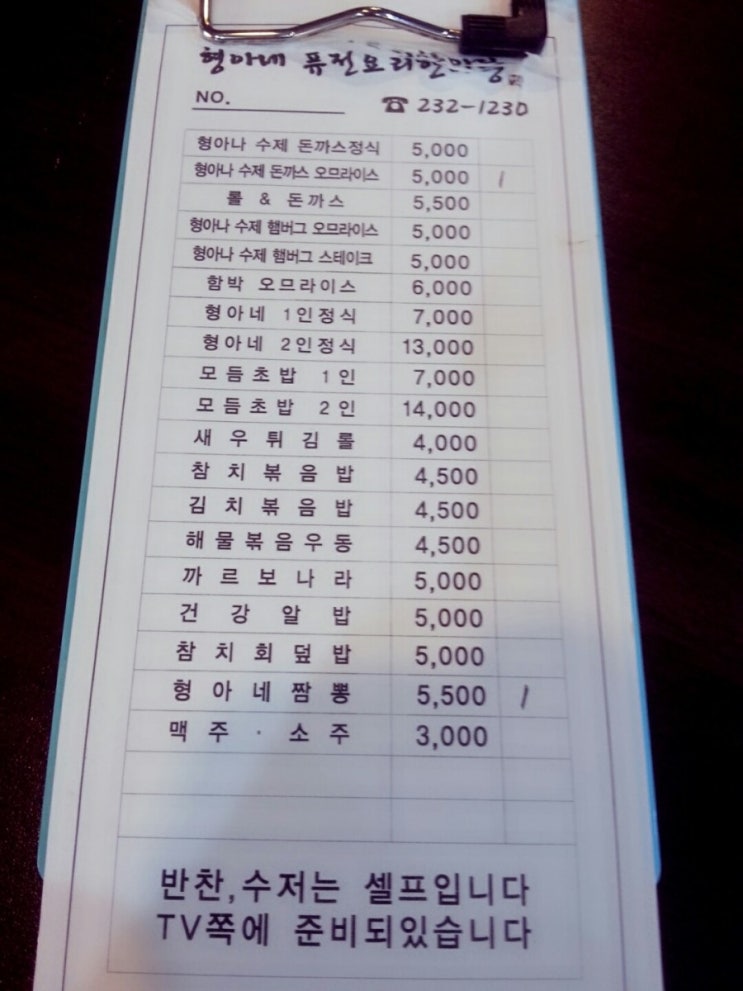 형아네 퓨전요리할만중
NO.
☎ 232-1230
형아나 수제 돈까스정식 5,000
형아나 수제 돈까스 오므라이스 5,000 1
롤 & 돈까스 5,500
형아나 수제 햄버그 오므라이스 5,000
형아나 수제 햄버그 스테이크 5,000
함박 오므라이스 6,000
형아네 1인정식 7,000
형아네 2인정식 13,000
모듬초밥 1인 7,000
모듬초밥 2인 14,000
새우튀김롤 4,000
참치볶음밥 4,500
김치볶음밥 4,500
해물볶음우동 4,500
까르보나라 5,000
건강알밥 5,000
참치회덮밥 5,000
형아네짬뽕 5,500 1
맥주 · 소주 3,000
반찬,수저는 셀프입니다
TV쪽에 준비되있습니다